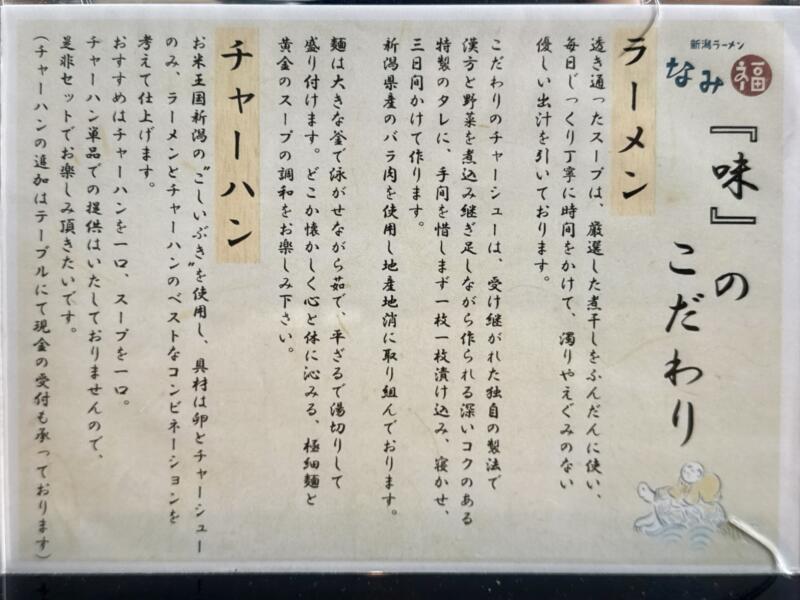 新潟ラーメン
なみ福
『味』の
こだわり
ラーメン
透き通ったスープは、厳選した煮干しをふんだんに使い、
毎日じっくり丁寧に時間をかけて、濁りやえぐみのない
優しい出汁を引いております。
こだわりのチャーシューは、受け継がれた独自の製法で
漢方と野菜を煮込み継ぎ足しながら作られる深いコクのある
特製のタレに、手間を惜しまず一枚一枚漬け込み、寝かせ、
三日間かけて作ります。
新潟県産のバラ肉を使用し地産地消に取り組んでおります。
麺は大きな釜で泳がせながら茹で、平ざるで湯切りして
盛り付けます。どこか懐かしく心と体に沁みる、極細麺と
黄金のスープの調和をお楽しみ下さい。
チャーハン
お米王国新潟の“こしいぶき”を使用し、具材は卵とチャーシュー
のみ、ラーメンとチャーハンのベストなコンビネーションを
考えて仕上げます。
おすすめはチャーハンを一口、スープを一口。
チャーハン単品での提供はいたしておりませんので、
是非セットでお楽しみ頂きたいです。
（チャーハンの追加はテーブルにて現金の受付も承っております）